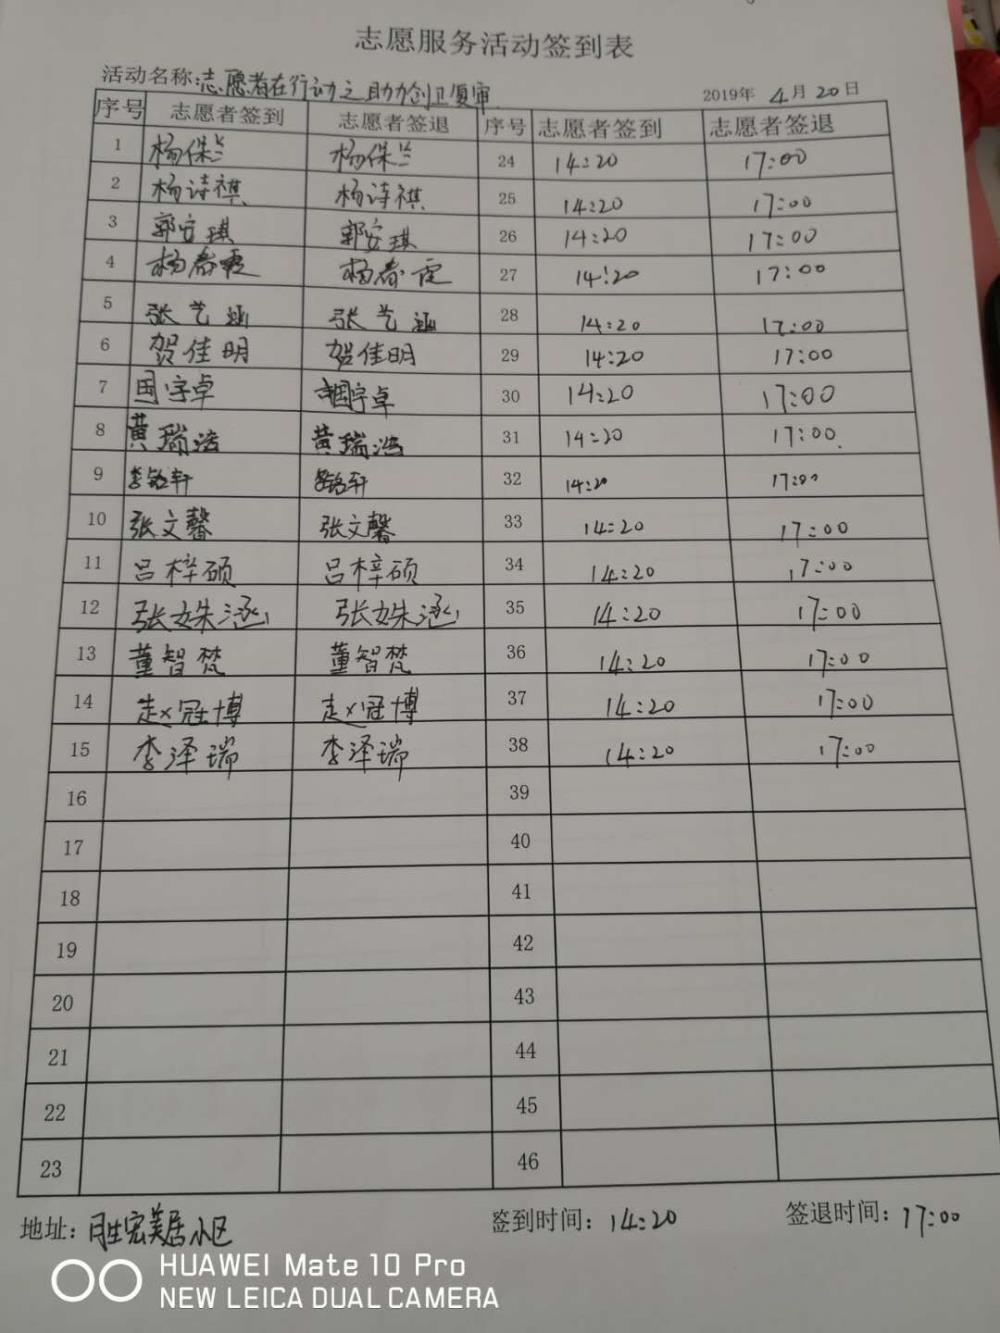 志愿服务活动签到表
活动名称:志愿者在行动之助力创卫复审 2019年 4月20日
序号 志愿者签到 志愿者签退 序号 志愿者签到 志愿者签退
1 杨保兰 杨保兰 24 14:20 17:00
2 杨诗祺 杨诗祺 25 14:20 17:00
3 郭安琪 郭安琪 26 14:20 17:00
4 杨春霞 杨春霞 27 14:20 17:00
5 张艺涵 张艺涵 28 14:20 17:00
6 贺佳明 贺佳明 29 14:20 17:00
7 国宇卓 国宇卓 30 14:20 17:00
8 黄瑞浩 黄瑞浩 31 14:20 17:00
9 李铭轩 李铭轩 32 14:20 17:00
10 张文馨 张文馨 33 14:20 17:00
11 吕梓硕 吕梓硕 34 14:20 17:00
12 张姝涵 张姝涵 35 14:20 17:00
13 董智梵 董智梵 36 14:20 17:00
14 赵冠博 赵冠博 37 14:20 17:00
15 李泽瑞 李泽瑞 38 14:20 17:00
16 39
17 40
18 41
19 42
20 43
21 44
22 45
23 46
地址: 宏美居小区 签到时间: 14:20 签退时间: 17:00
HUAWEI Mate 10 Pro
NEW LEICA DUAL CAMERA